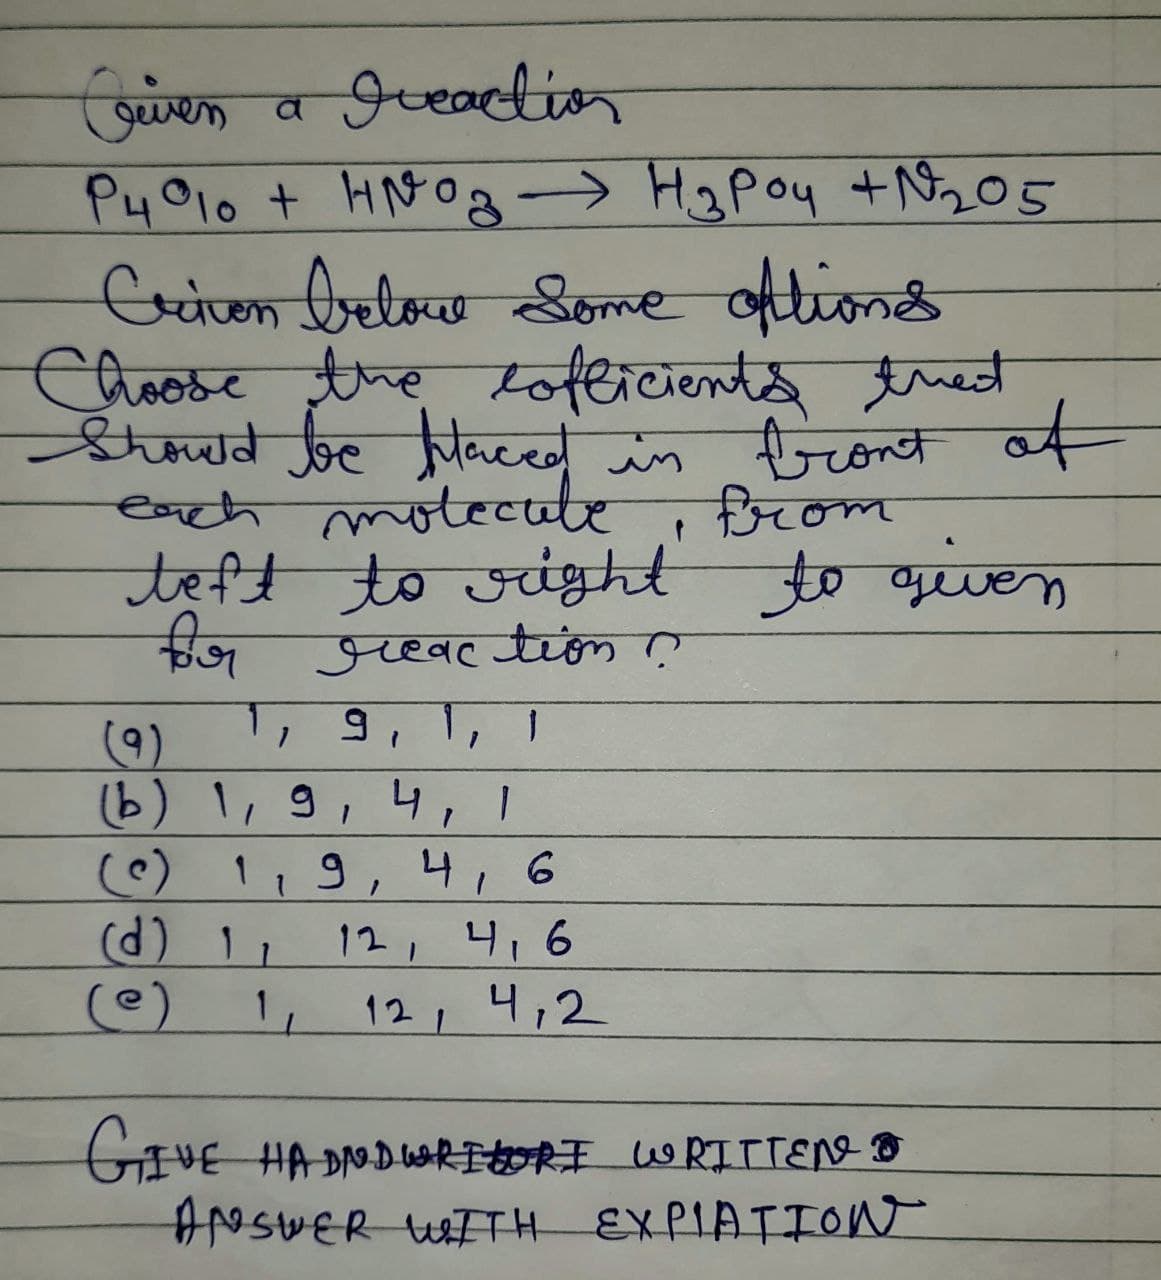 Given a reaction
P4O10 + HNO3 → H3PO4 + N2O5
Given below some options
Choose the cofficients thet
should be placed in front of
each molecule, from
left to right to given
for reaction?
(a) 1, 9, 1, 1
(b) 1, 9, 4, 1
(c) 1, 9, 4, 6
(d) 1, 12, 4, 6
(e) 1, 12, 4, 2
GIVE WRITTEN
ANSWER WITH EXPLATION